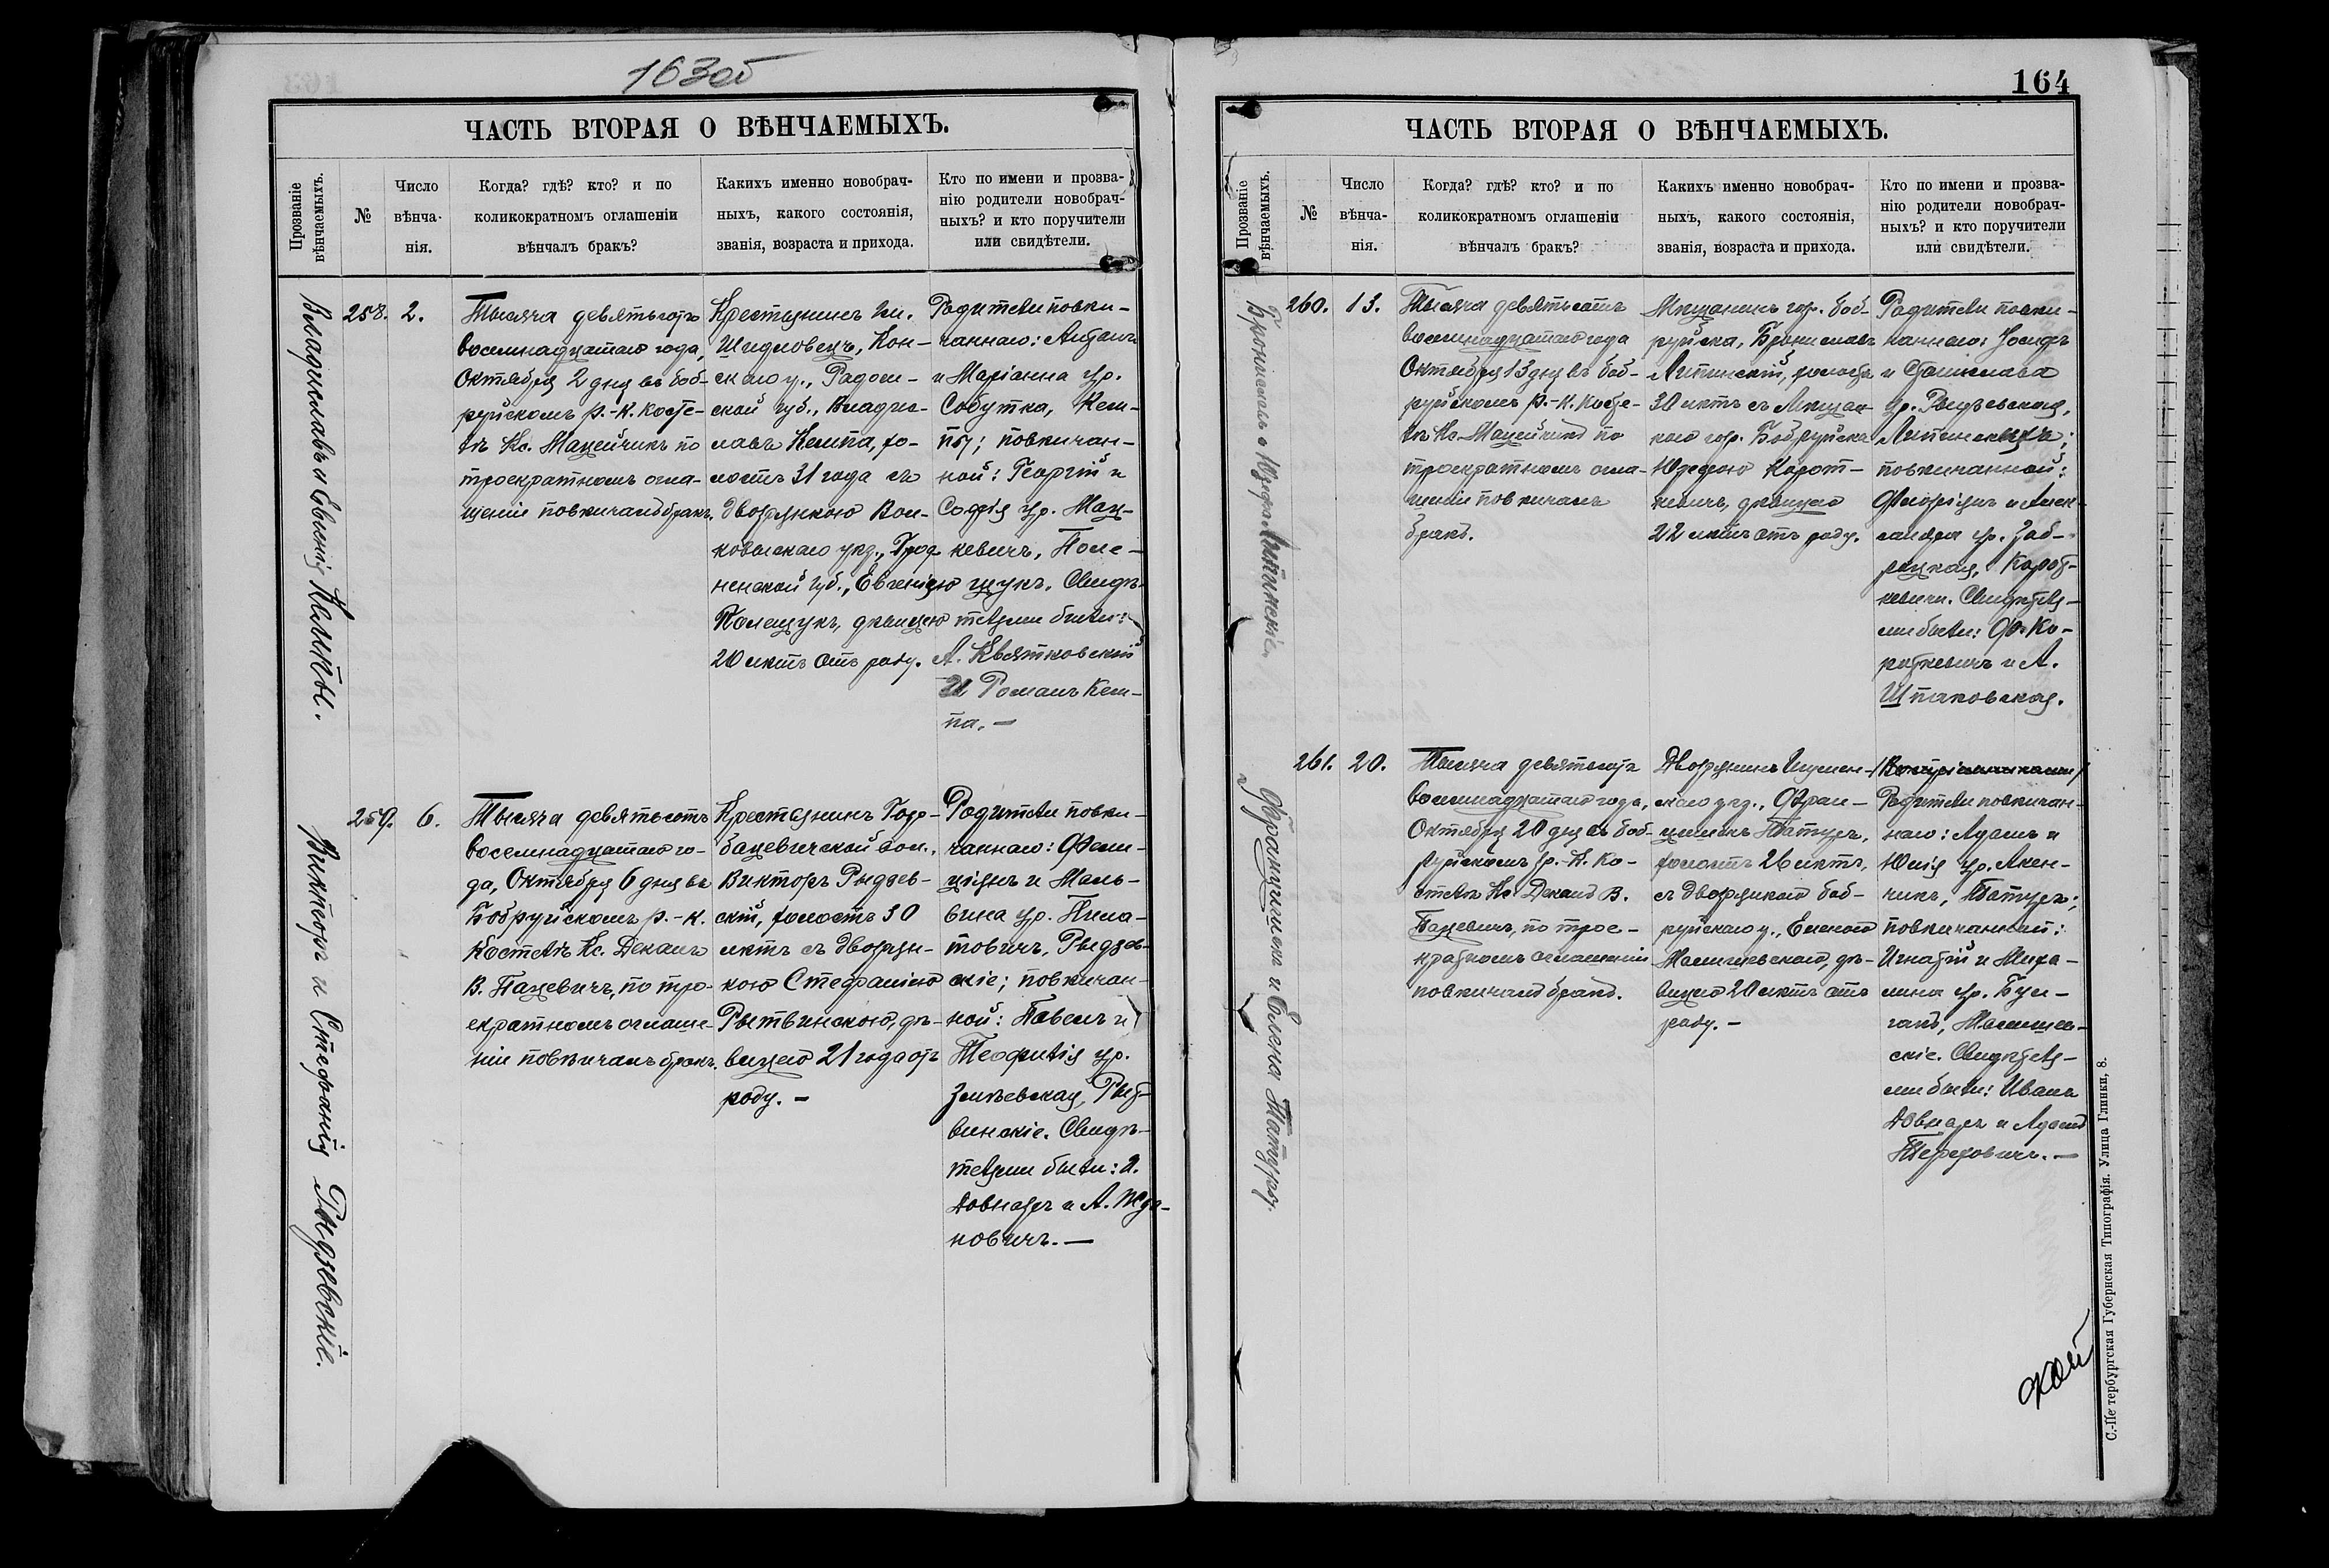 163об
ЧАСТЬ ВТОРАЯ О ВѢНЧАЕМЫХЪ.
Прозваніе
вѣнчаемыхъ.
№
Число
вѣнча-
нія.
Когда? гдѣ? кто? и по
коликократномъ оглашеніи
вѣнчалъ бракъ?
Какихъ именно новобрач-
ныхъ, какого состоянія,
званія, возраста и прихода.
Кто по имени и прозва-
нію родители новобрач-
ныхъ? и кто поручители
или свидѣтели.
Владиславъ и Евгенія Кемпы.
258.
2.
Тысяча девятьсотъ
восемнадцатаго года,
Октября 2 дня въ Боб-
руйскомъ р.-к. косте-
лѣ Кс. Мацейчикъ по
троекратномъ огла-
щеніи повѣнчалъ бракъ.
Крестьянинъ гм.
Шидловецъ, Кон-
скаго у., Радом-
ской губ., Влади-
славъ Кемпа, хо-
лостъ 31 года съ
дворянкою Вол-
ковыскаго уѣз., Грод-
ненской губ., Евгеніею
Полещукъ, дѣвицею
20 лѣтъ отъ роду.
Родители повѣн-
чаннаго: Антонъ
и Маріанна ур.
Собутка, Кем-
пы; повѣнчан-
ной: Георгій и
Софія ур. Мац-
кевичъ, Поле-
щукъ. Свидѣ-
телями были:
А. Квятковскій
и Романъ Кем-
па. —
Викторъ и Стефанія Рыдзевскіе.
259.
6.
Тысяча девятьсотъ
восемнадцатаго го-
да, Октября 6 дня въ
Бобруйскомъ р.-к.
костелѣ Кс. Деканъ
В. Пацевичъ, по тро-
екратномъ оглаше-
ніи повѣнчалъ бракъ.
Крестьянинъ Горо-
бацевичской вол.,
Викторъ Рыдзев-
скій, холостъ 30
лѣтъ съ дворян-
кою Стефаніею
Рытвинскою, дѣ-
вицею 21 года отъ
роду. —
Родители повѣн-
чаннаго: Фели-
ціянъ и Маль-
вина ур.
Рыдзев-
скіе; повѣнчан-
ной: Павелъ и
Теофилія ур.
Змѣевская, Рыт-
винскіе. Свидѣ-
телями были: І.
Довнаръ и А. Жда-
новичъ. —
164
ЧАСТЬ ВТОРАЯ О ВѢНЧАЕМЫХЪ.
Прозваніе
вѣнчаемыхъ.
№
Число
вѣнча-
нія.
Когда? гдѣ? кто? и по
коликократномъ оглашеніи
вѣнчалъ бракъ?
Какихъ именно новобрач-
ныхъ, какого состоянія,
званія, возраста и прихода.
Кто по имени и прозва-
нію родители новобрач-
ныхъ? и кто поручители
или свидѣтели.
Брониславъ и Юзефа Липинскіе.
260.
13.
Тысяча девятьсотъ
восемнадцатаго года
Октября 13 дня въ Боб-
руйскомъ р.-к. косте-
лѣ Кс. Мацейчикъ по
троекратномъ огла-
шеніи повѣнчалъ
бракъ.
Мѣщанинъ гор. Боб-
руйска, Брониславъ
Липинскій, холостъ
30 лѣтъ съ мѣщан-
кою гор. Бобруйска
Юзефою Корот-
кевичъ, дѣвицею
22 лѣтъ отъ роду.
Родители повѣн-
чаннаго: Іосифъ
и Станислава
ур.
повѣнчанной:
Флоріянъ и Алек-
сандра ур. Заб-
лоцкая, Корот-
кевичи. Свидѣтеля-
ми были: Ф. Ко-
роткевичъ и А.
Шпаковская.
Францишекъ и Елена Татуры.
261.
20.
Тысяча девятьсотъ
восемнадцатаго года,
Октября 20 дня въ Боб-
руйскомъ р.-к. ко-
стелѣ Кс. Деканъ В.
Пацевичъ, по трое-
кратномъ оглашеніи
повѣнчалъ бракъ.
Дворянинъ Игумен-
скаго уѣз., Фран-
цишекъ Татуръ,
холостъ 26 лѣтъ,
съ дворянкою Боб-
руйскаго у., Еленою
дѣ-
вицею 20 лѣтъ отъ
роду. —
Родители повѣнчан-
наго: Адамъ и
Юлія ур.
Татуры;
повѣнчанной:
Игнатій и Миха-
лина ур. Бул-
гакъ,
Свидѣтеля-
ми были: Иванъ
Довнаръ и Адамъ
С.-Петербургская Губернская Типографія. Улица Глинки, 8.